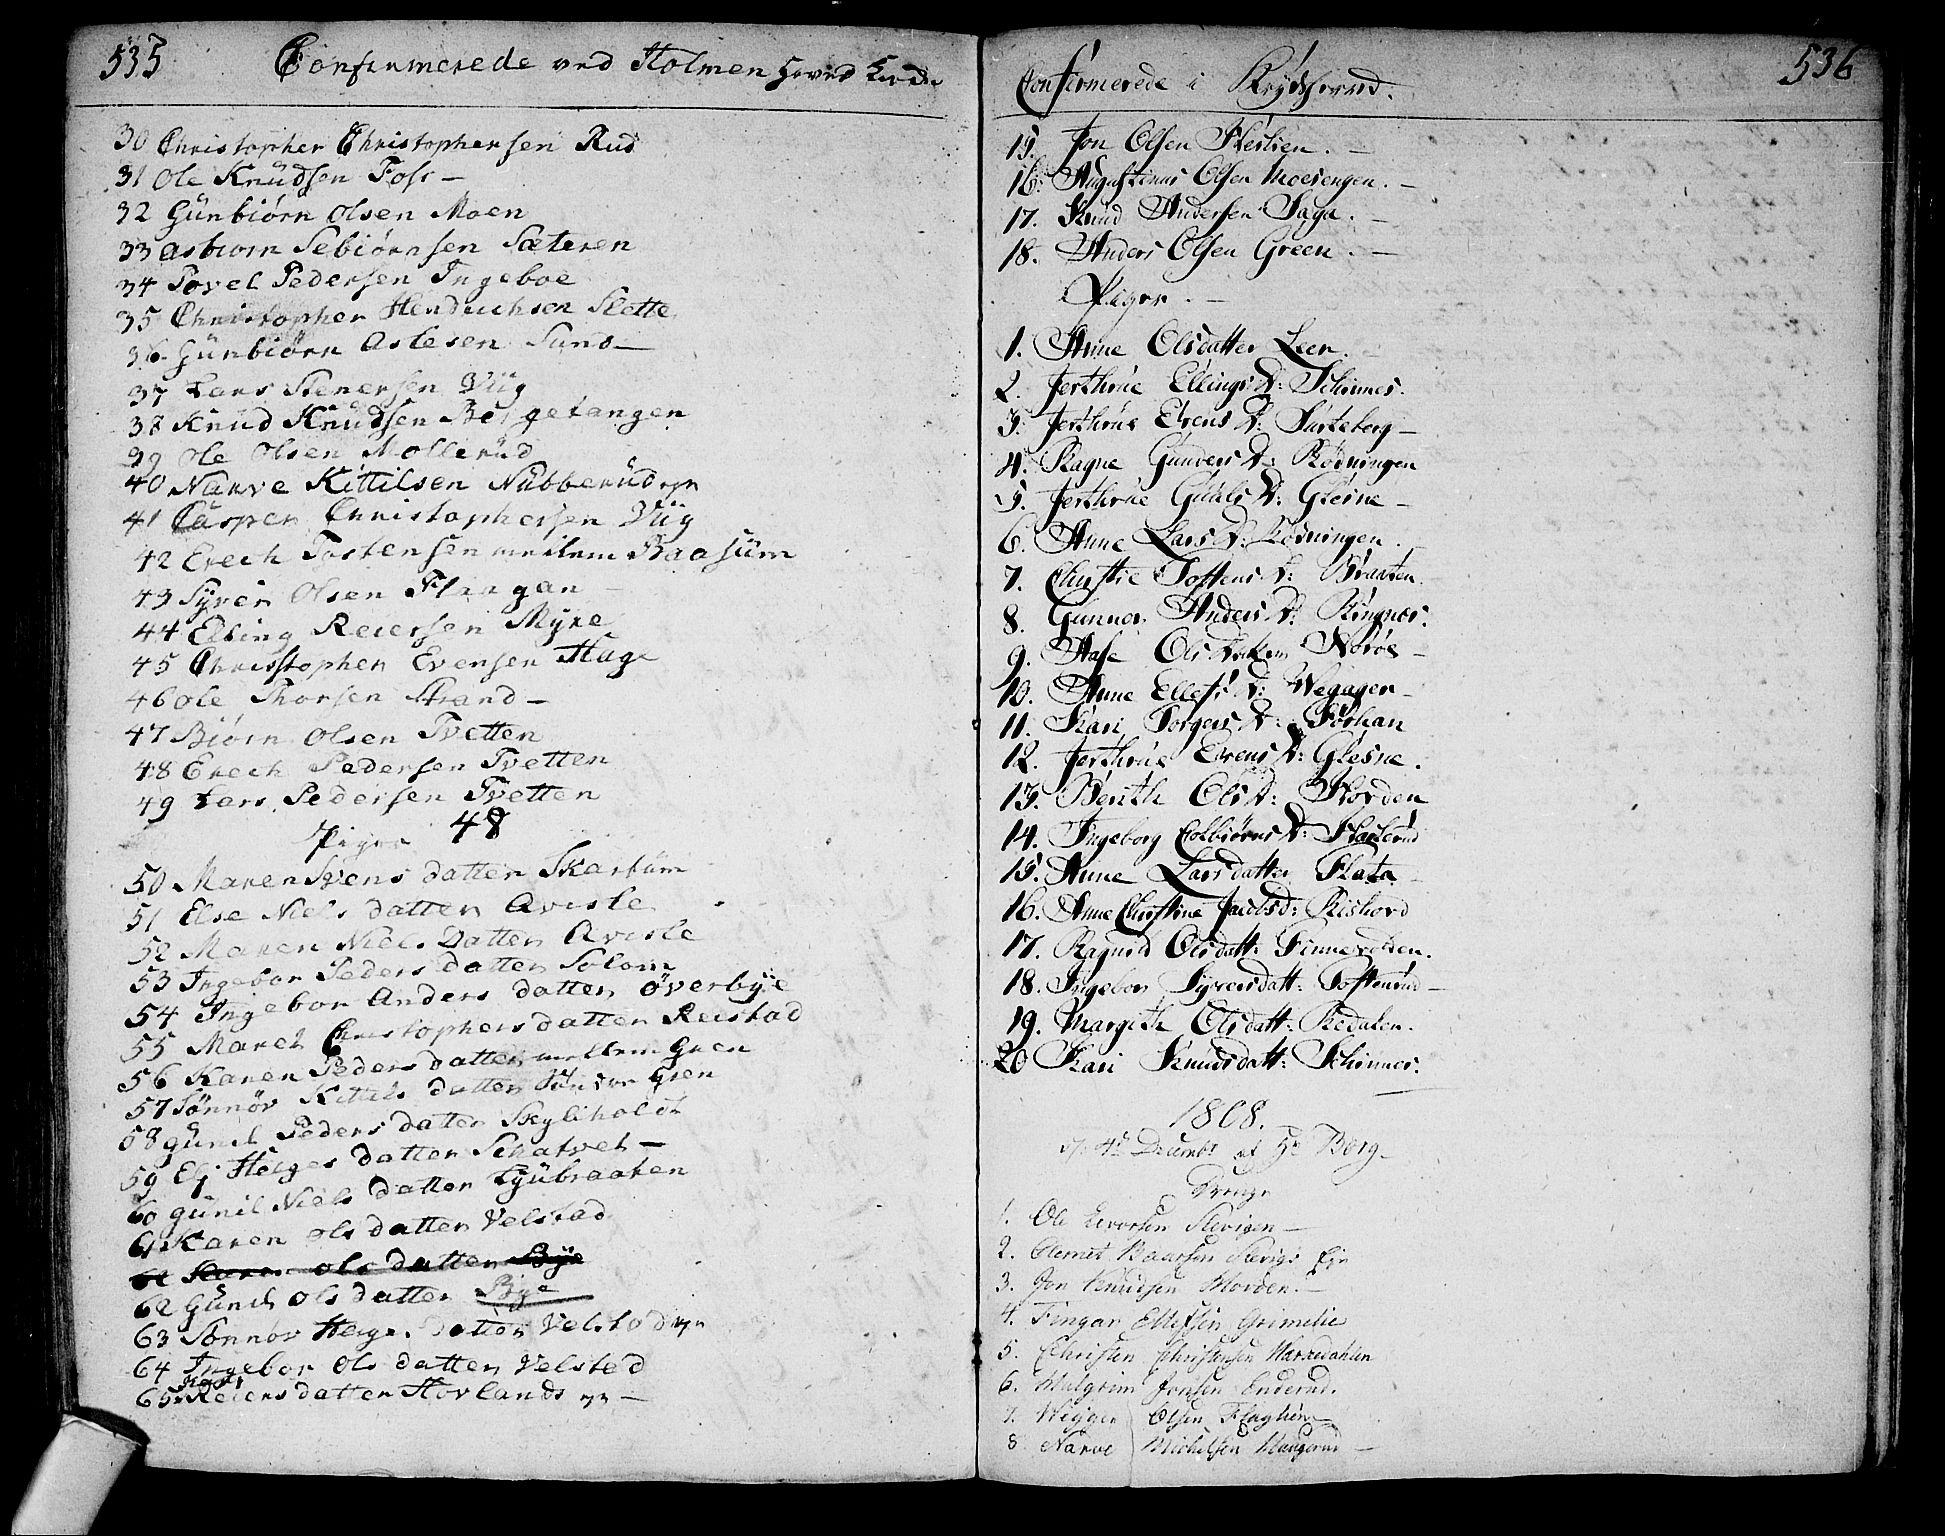 535 Confirmerede ved Holmen Hoved Kirke
30 Christopher Christophersen Rud
31 Ole Knüdsen Foss —
32 Günbiørn Olsen Moen
33 asbiorn Sebiørnsen Sæteren
34 Povel Pedersen Ingeboe
35 Christopher Hendrichsen Slette
36. Günbiørn Aslesen Sand —
37 Lars Stenersen Viig
38 Knüd Knüdsen Bergetangen
39 Ole Olsen Mollerüd
40 Narve Kittilsen Nübberüd
41 Casper Christophersen Viig
42 Erech Tostensen mellem Raasüm
43 Syver Olsen Flaagan —
44 Elling Reiersen Myre
45 Christopher Evensen Hage
46 Ole Thorsen Strand —
47 Biørn Olsen Tvetten
48 Erech Pedersen Tvetten
49 Lars Pedersen Tvetten
Piger 48
50 Maren Svens datter Skartum
51 Else Niels datter Averle
52 Maren Niels Datter Averle
53 Ingebor Peders datter Solom
54 Ingebor Anders datter överbÿe
55 Maret Christophers datter Reistad
56 Karen Peders datter mellem Gren
57 Sönnöv Kittels datter Gren
58 Gunil Peders datter
59 Eli Helges datter Schatvet —
60 gunil Niels datter Lyübraaten
61 Karen ols datter Velstad
62 Karen ols datter Bÿe
62 Günil ols datter Bÿe
63 Sønnøv Helge datter Velstad
64 Ingebor ols datter Velsted
65 Reiers datter Hovlands —
Confirmerede i Krydsherred. 536
15. Jon Olsen Skeslien. —
16. Augustinus Olsen Moesengen. —
17. Knud Andersen Saga. —
18. Anders Olsen Green. —
Piger. —
1. Anne Olsdatter Leer. —
2. Jerthrüe Ellings D: Schinnes.
3. Jerthrüe Evens D: Sarteberg —
4. Ragne Gunders D: Rødningen
5. Jerthrüe Gulds D: Glesne —
6. Anne Lars D: Rødningen.
7. Christie Tostens D: Braaten.
8. Gunner Anders D: Ringnes.
9. Aase Ols D: Norøe —
10. Anne Ellefs D: Wegager —
11. Kari Torgers D: Sørhan
12. Jerthrüe Evens D: Glesne.
13. Berith Ols D: Skorden
14. Ingeborg Colbiørns D: Skarlerud
15. Anne Larsdatter Flata —
16. Anne Christine Jacobsd: Rishovd
17. Ragnild Olsdatt: Finneretten.
18. Ingebor Syversdatt: Tostenrud —
19. Margith Olsdatt: Redalen.
20 Kari Knudsdatt: Schinnes.
1808.
4de Decembr af Berg —
Drenge
1. Ole Levorsen Slevigen —
2. Clemet Baarsen Slevigs Eje
3. Jon Knudsen Horden. —
4. Fingar Ellefsen Grimelie
5. Christen Christensen Harredahlen
6. Halgrim Jonsen Enderud.
7. Wegger Olsen Flaghün —
8. Narve Michelsen Haugerud —